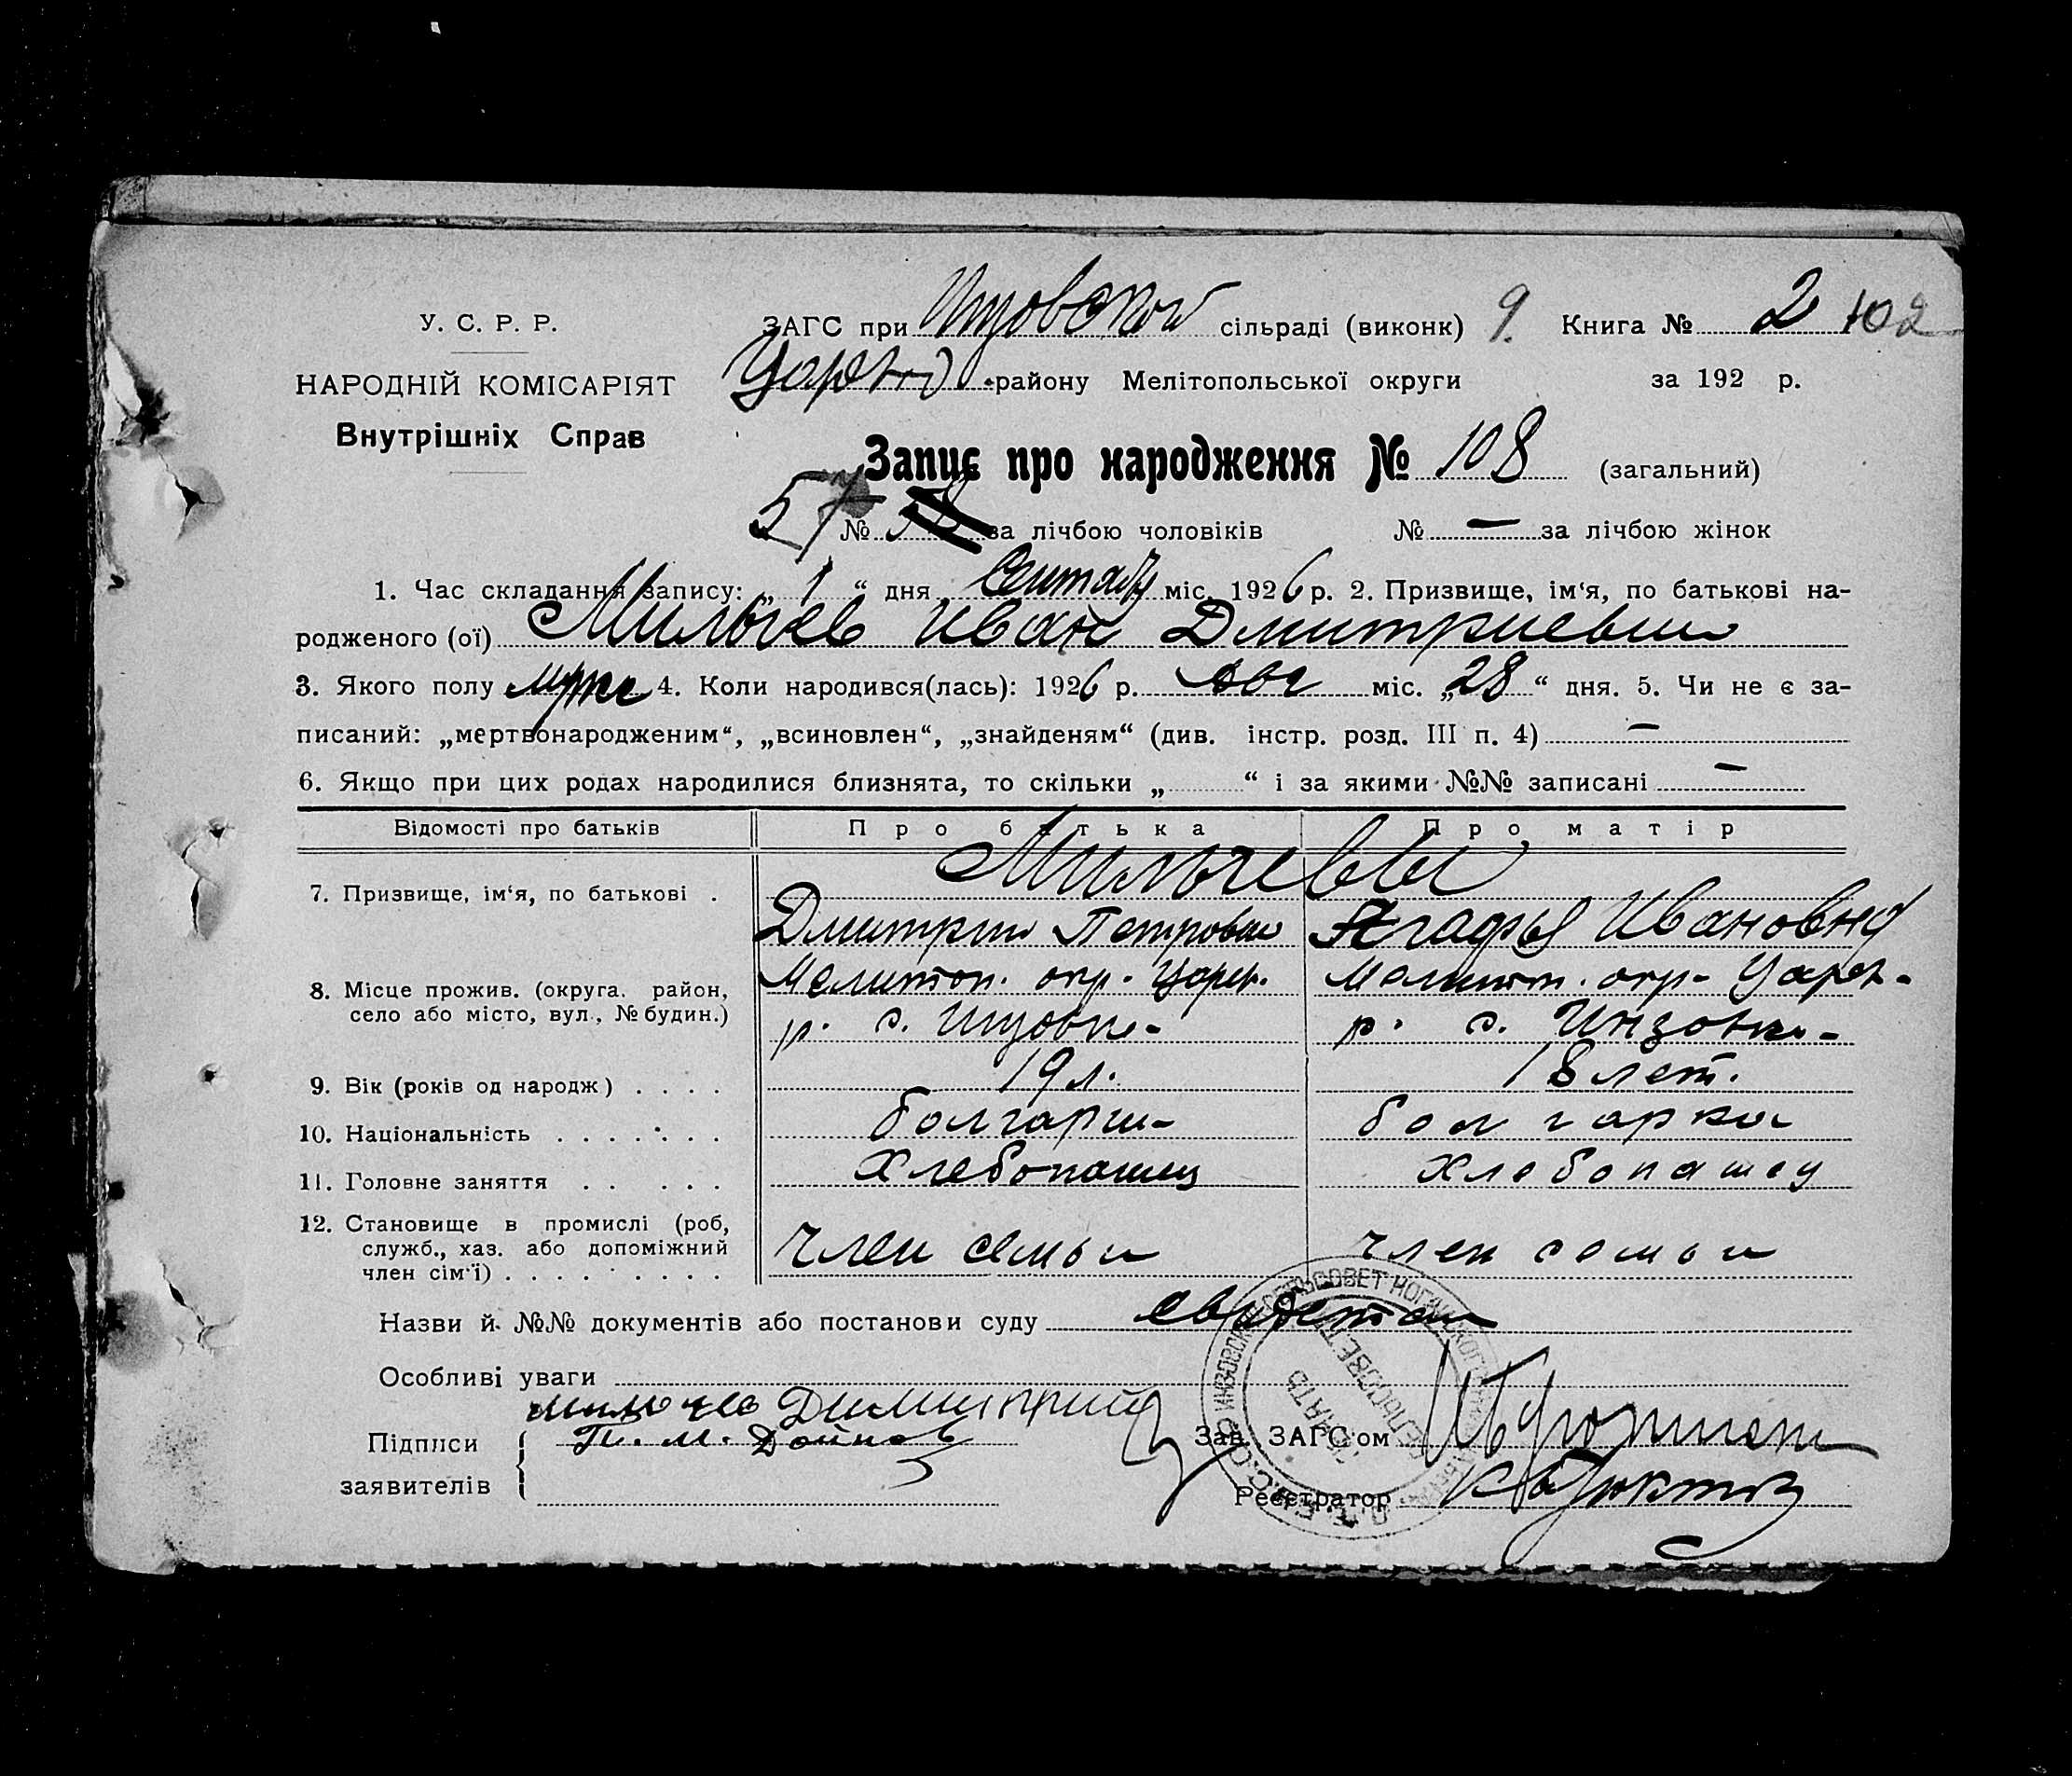 У. С. Р. Р.
НАРОДНІЙ КОМІСАРІЯТ
Внутрішніх Справ
ЗАГС при Инзовской сільраді (виконк) 9. Книга № 2 102
Царев району Мелітопольської округи за 192 р.
Запис про народження № 108 (загальний)
57 № за лічбою чоловіків № — за лічбою жінок
1. Час складання запису: „1“ дня Сентября міс. 1926 р. 2. Призвище, ім‘я, по батькові на-
родженого (ої) Мильчев Иван Дмитриевич
3. Якого полу муже 4. Коли народився(лась): 1926 р. авг міс. „28“ дня. 5. Чи не є за-
писаний: „мертвонародженим“, „всиновлен“, „знайденям“ (див. інстр. розд. III п. 4) —
6. Якщо при цих родах народилися близнята, то скільки „ “ і за якими №№ записані —
Відомості про батьків Про батька Про матір
Мильчевы
7. Призвище, ім‘я, по батькові .
Дмитрий Петрович Агафья Ивановна
8. Місце прожив. (округа. район, Мелитоп. окр. Царев. Мелитоп. окр. Царев.
село або місто, вул., № будин.) р. с. Инзовка р. с. Инзовка
9. Вік (років од народж) . . . . 19 л. 18 лет.
10. Національність . . . . . . . болгарин болгарка
11. Головне заняття . . . . . Хлебопашец Хлебопашец
12. Становище в промислі (роб,
служб., хаз. або допоміжний член семьи член семьи
член сім‘ї) . . . . . . . . .
Назви й №№ документів або постанови суду
Особливі уваги
Мильчев Димитрий
Підписи П. М. Дойнов
заявителів
Зав. ЗАГС‘ом
Реєстратор